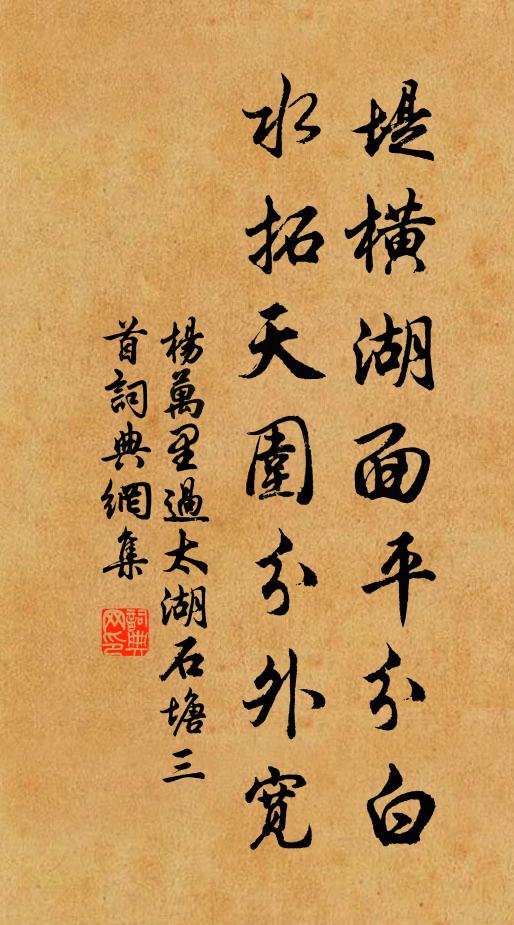 堤橫湖面平分白
水拓天圍分外寬
楊萬里過太湖石塘三
首詞典網集
詞典
网印